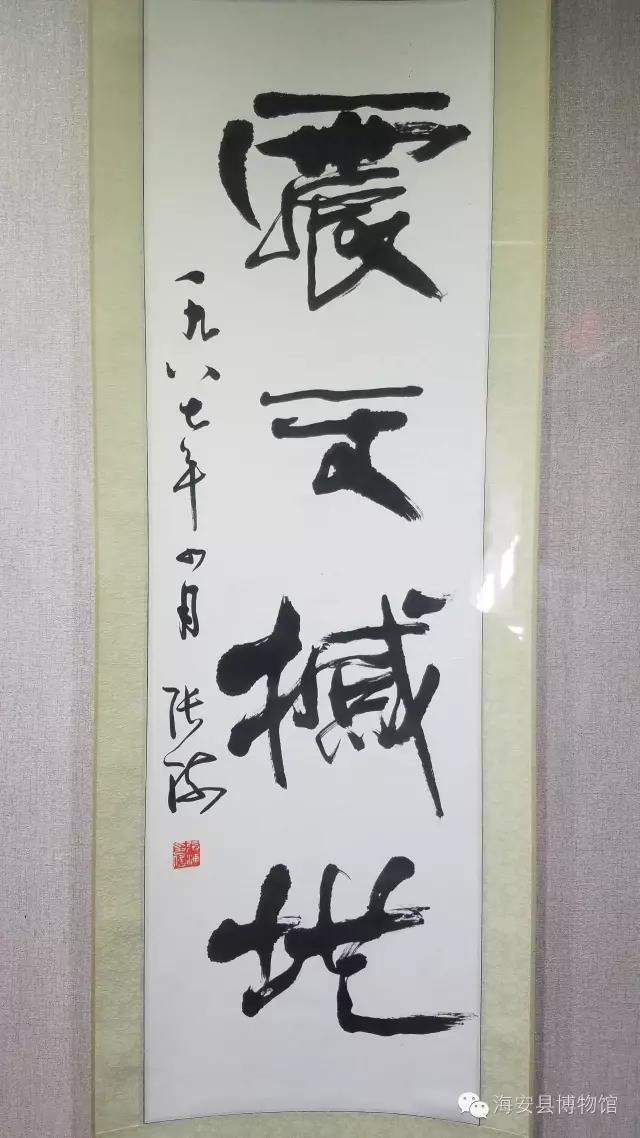 震天撼地
一九八七年四月 张
海安县博物馆